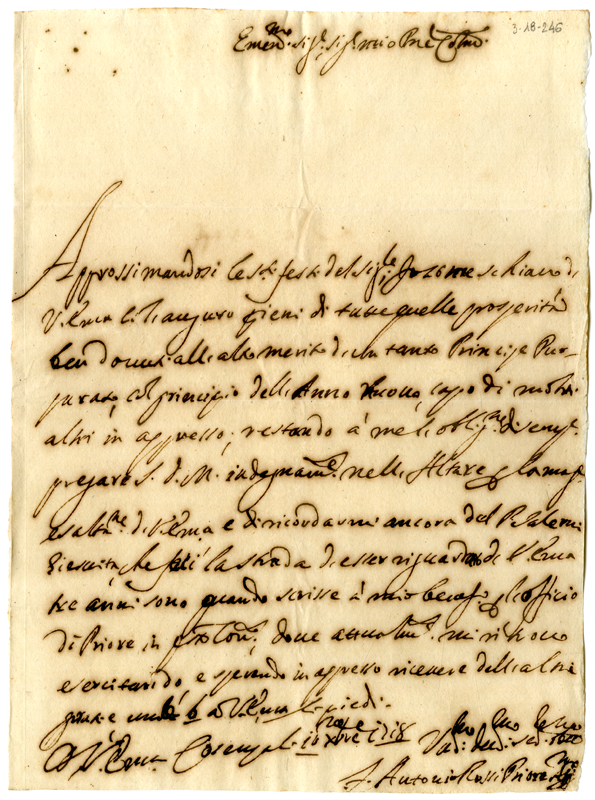 3-18-246
Emen.mo Sig.r Sig.r mio Pne Colmo.
Approssimandosi le S.te feste del Sig.re Io come schiavo di
V. Emza le l'auguro pieni di tutte quelle prosperità
ben dovute all'alto merito di un tanto Principe Pur-
purato, col principio dell'Anno nuovo, capo di molti
altri in appresso; restando à me l'oblig.ne di semp.
pregare S. D. M. indegnam.te nelle Altare p la mag.
esalt.ne di V. Emza e di ricordarmi ancora del P.
Giesuita, che la strada di esser riguardato di V. Emza
tre anni sono quando scrisse à mio l'officio
di Priore, in dove attualm.te mi ritrovo
esercitando, e sperando in appresso ricevere dell'altre
grazie li piedi.
D V. Emza Cosenza li 10 Xbre 1718
F. Antonio Rossi Priore